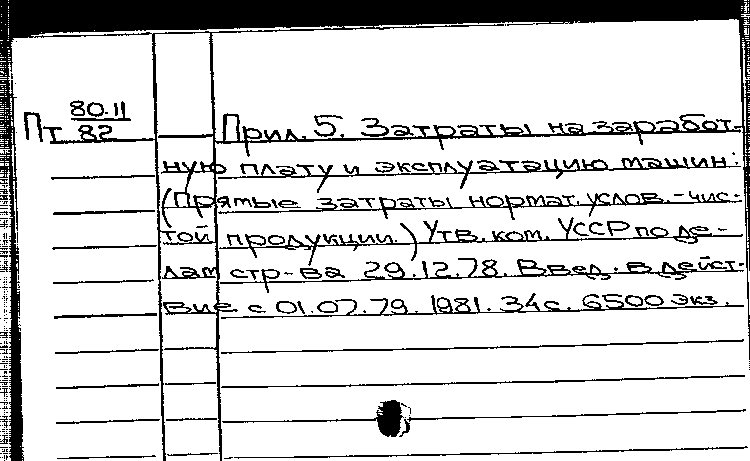 Пт 80.11/82
Прил. 5. Затраты на заработ-
ную плату и эксплуатацию машин:
(Прямые затраты нормат. услов.-чис-
той продукции.) Утв. ком. УССР по де-
лам стр-ва 29.12.78. Введ. в дейст-
вие с 01.07.79. 1981. 34с. 6500 экз.